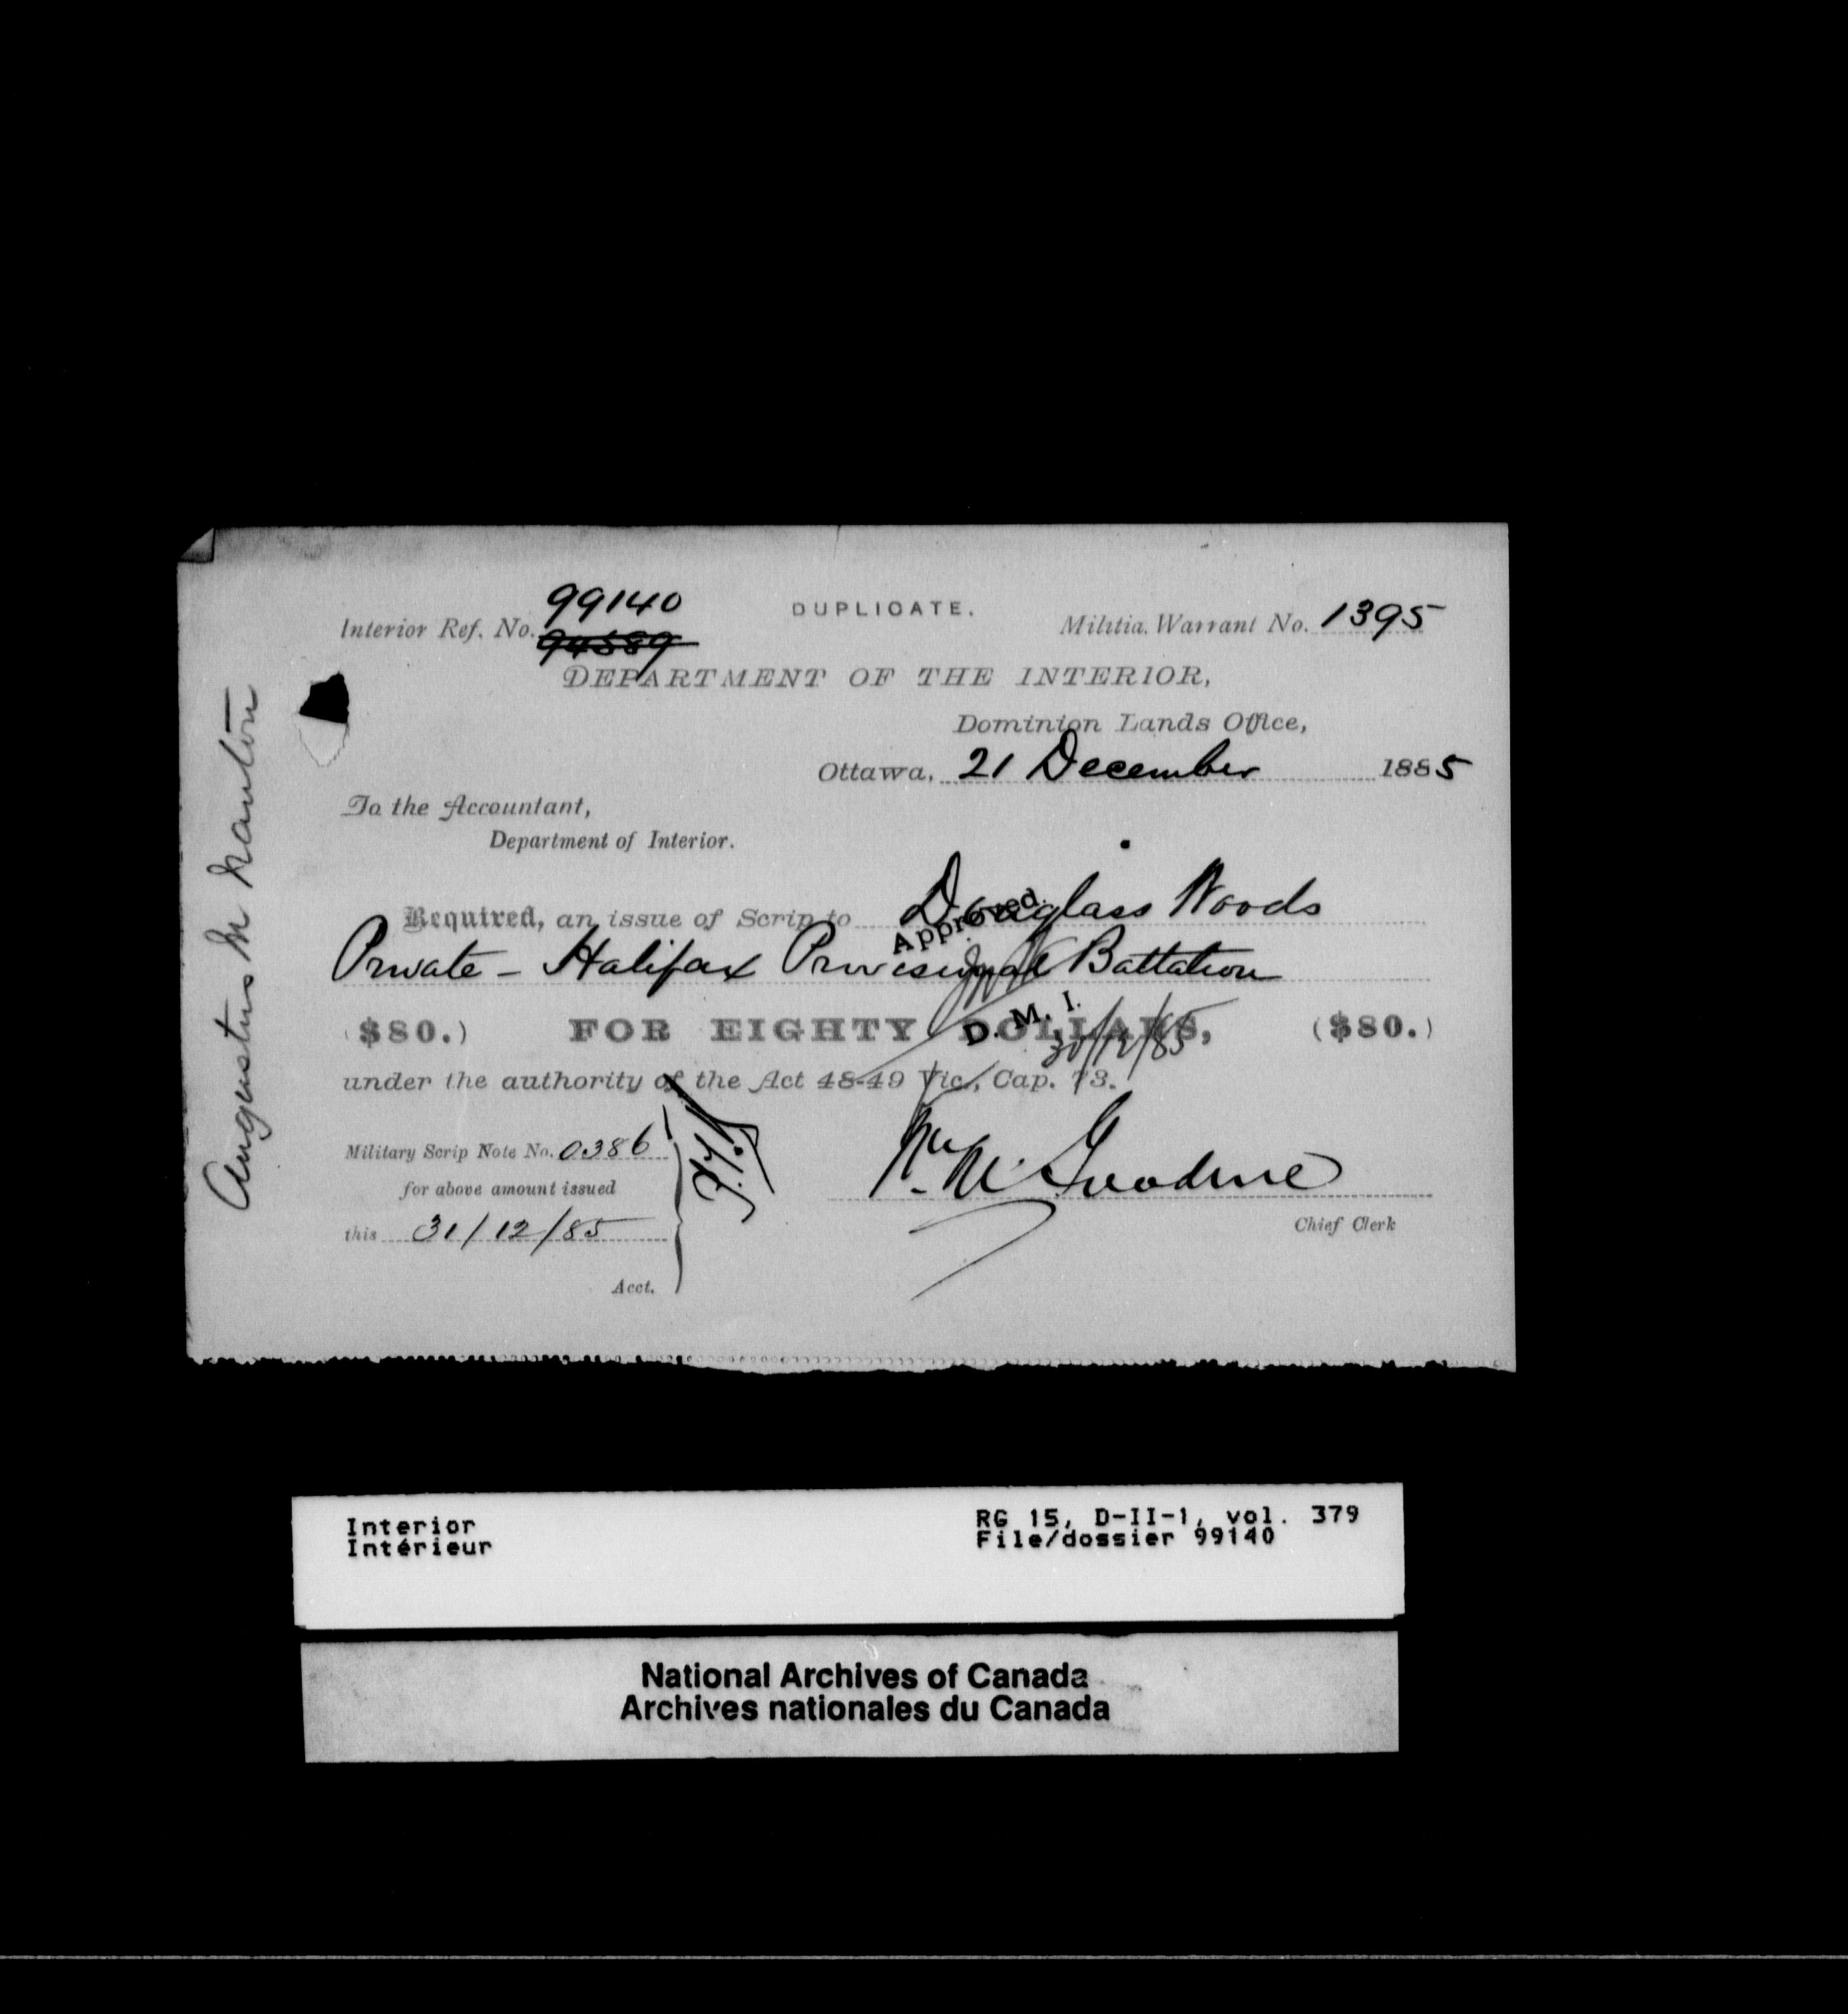 99140
DUPLICATE.
Interior Ref. No. 94589
Militia Warrant No. 1395
DEPARTMENT OF THE INTERIOR,
Dominion Lands Office,
Ottawa, 21 December 1885
To the Accountant,
Department of Interior.
Required, an issue of Scrip to Douglass Woods
Private - Halifax Provisional Battalion
Approved.
D. M. I.
30/12/85
($80.) FOR EIGHTY DOLLARS, ($80.)
under the authority of the Act 48-49 Vic., Cap. 73.
Military Scrip Note No. 0386
for above amount issued
this 31/12/85
Acct.
Wm M. Goodeve
Chief Clerk
Augustus M Nanton
Interior
Intérieur
RG 15, D-II-1, vol. 379
File/dossier 99140
National Archives of Canada
Archives nationales du Canada